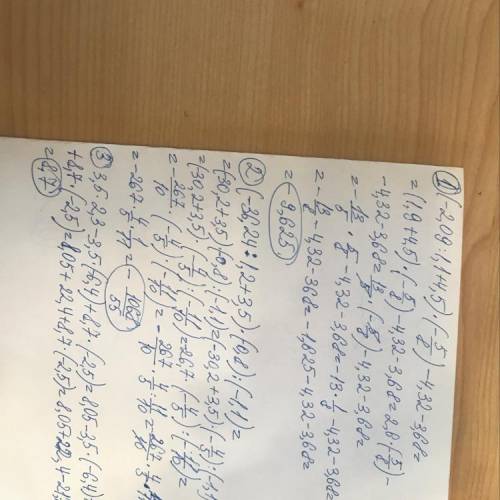 ① (-2,09 : 1,1+4,5) · (-5/8) - 4,32 - 3,68 =
= (1,9 + 4,5) · (-5/8) - 4,32 - 3,68 = 2,6 (-5/8) -
- 4,32 - 3,68 = 13/5 · (-5/8) - 4,32 - 3,68 =
= - 13/5 · 5/8 - 4,32 - 3,68 = - 13 · 1/8 - 4,32 - 3,68 =
= - 13/8 - 4,32 - 3,68 = - 1,625 - 4,32 - 3,68 =
= - 9,625
② (-36,24 : 1,2 + 3,5) · (-0,8) : (-1,1) =
= (-30,2 + 3,5) · (-0,8) : (-1,1) = (-30,2 + 3,5) · (-4/5) : (-1,1)
= (30,2 - 3,5) · (-4/5) : (-11/10) = 26,7 · (-4/5) : (-11/10) =
= - 267/10 · (-4/5) : (-11/10) = - 267/10 · 4/5 : 11/10 =
= - 267 · 4/5 · 1/11 = - 1068/55
③ 3,5 · 2,3 - 3,5 · (-6,4) + 8,7 · (-2,5) = 8,05 - 3,5 · (-6,4)
+ 8,7 · (-2,5) = 8,05 + 22,4 + 8,7 · (-2,5) = 8,05 + 22,4 -
= 8,7